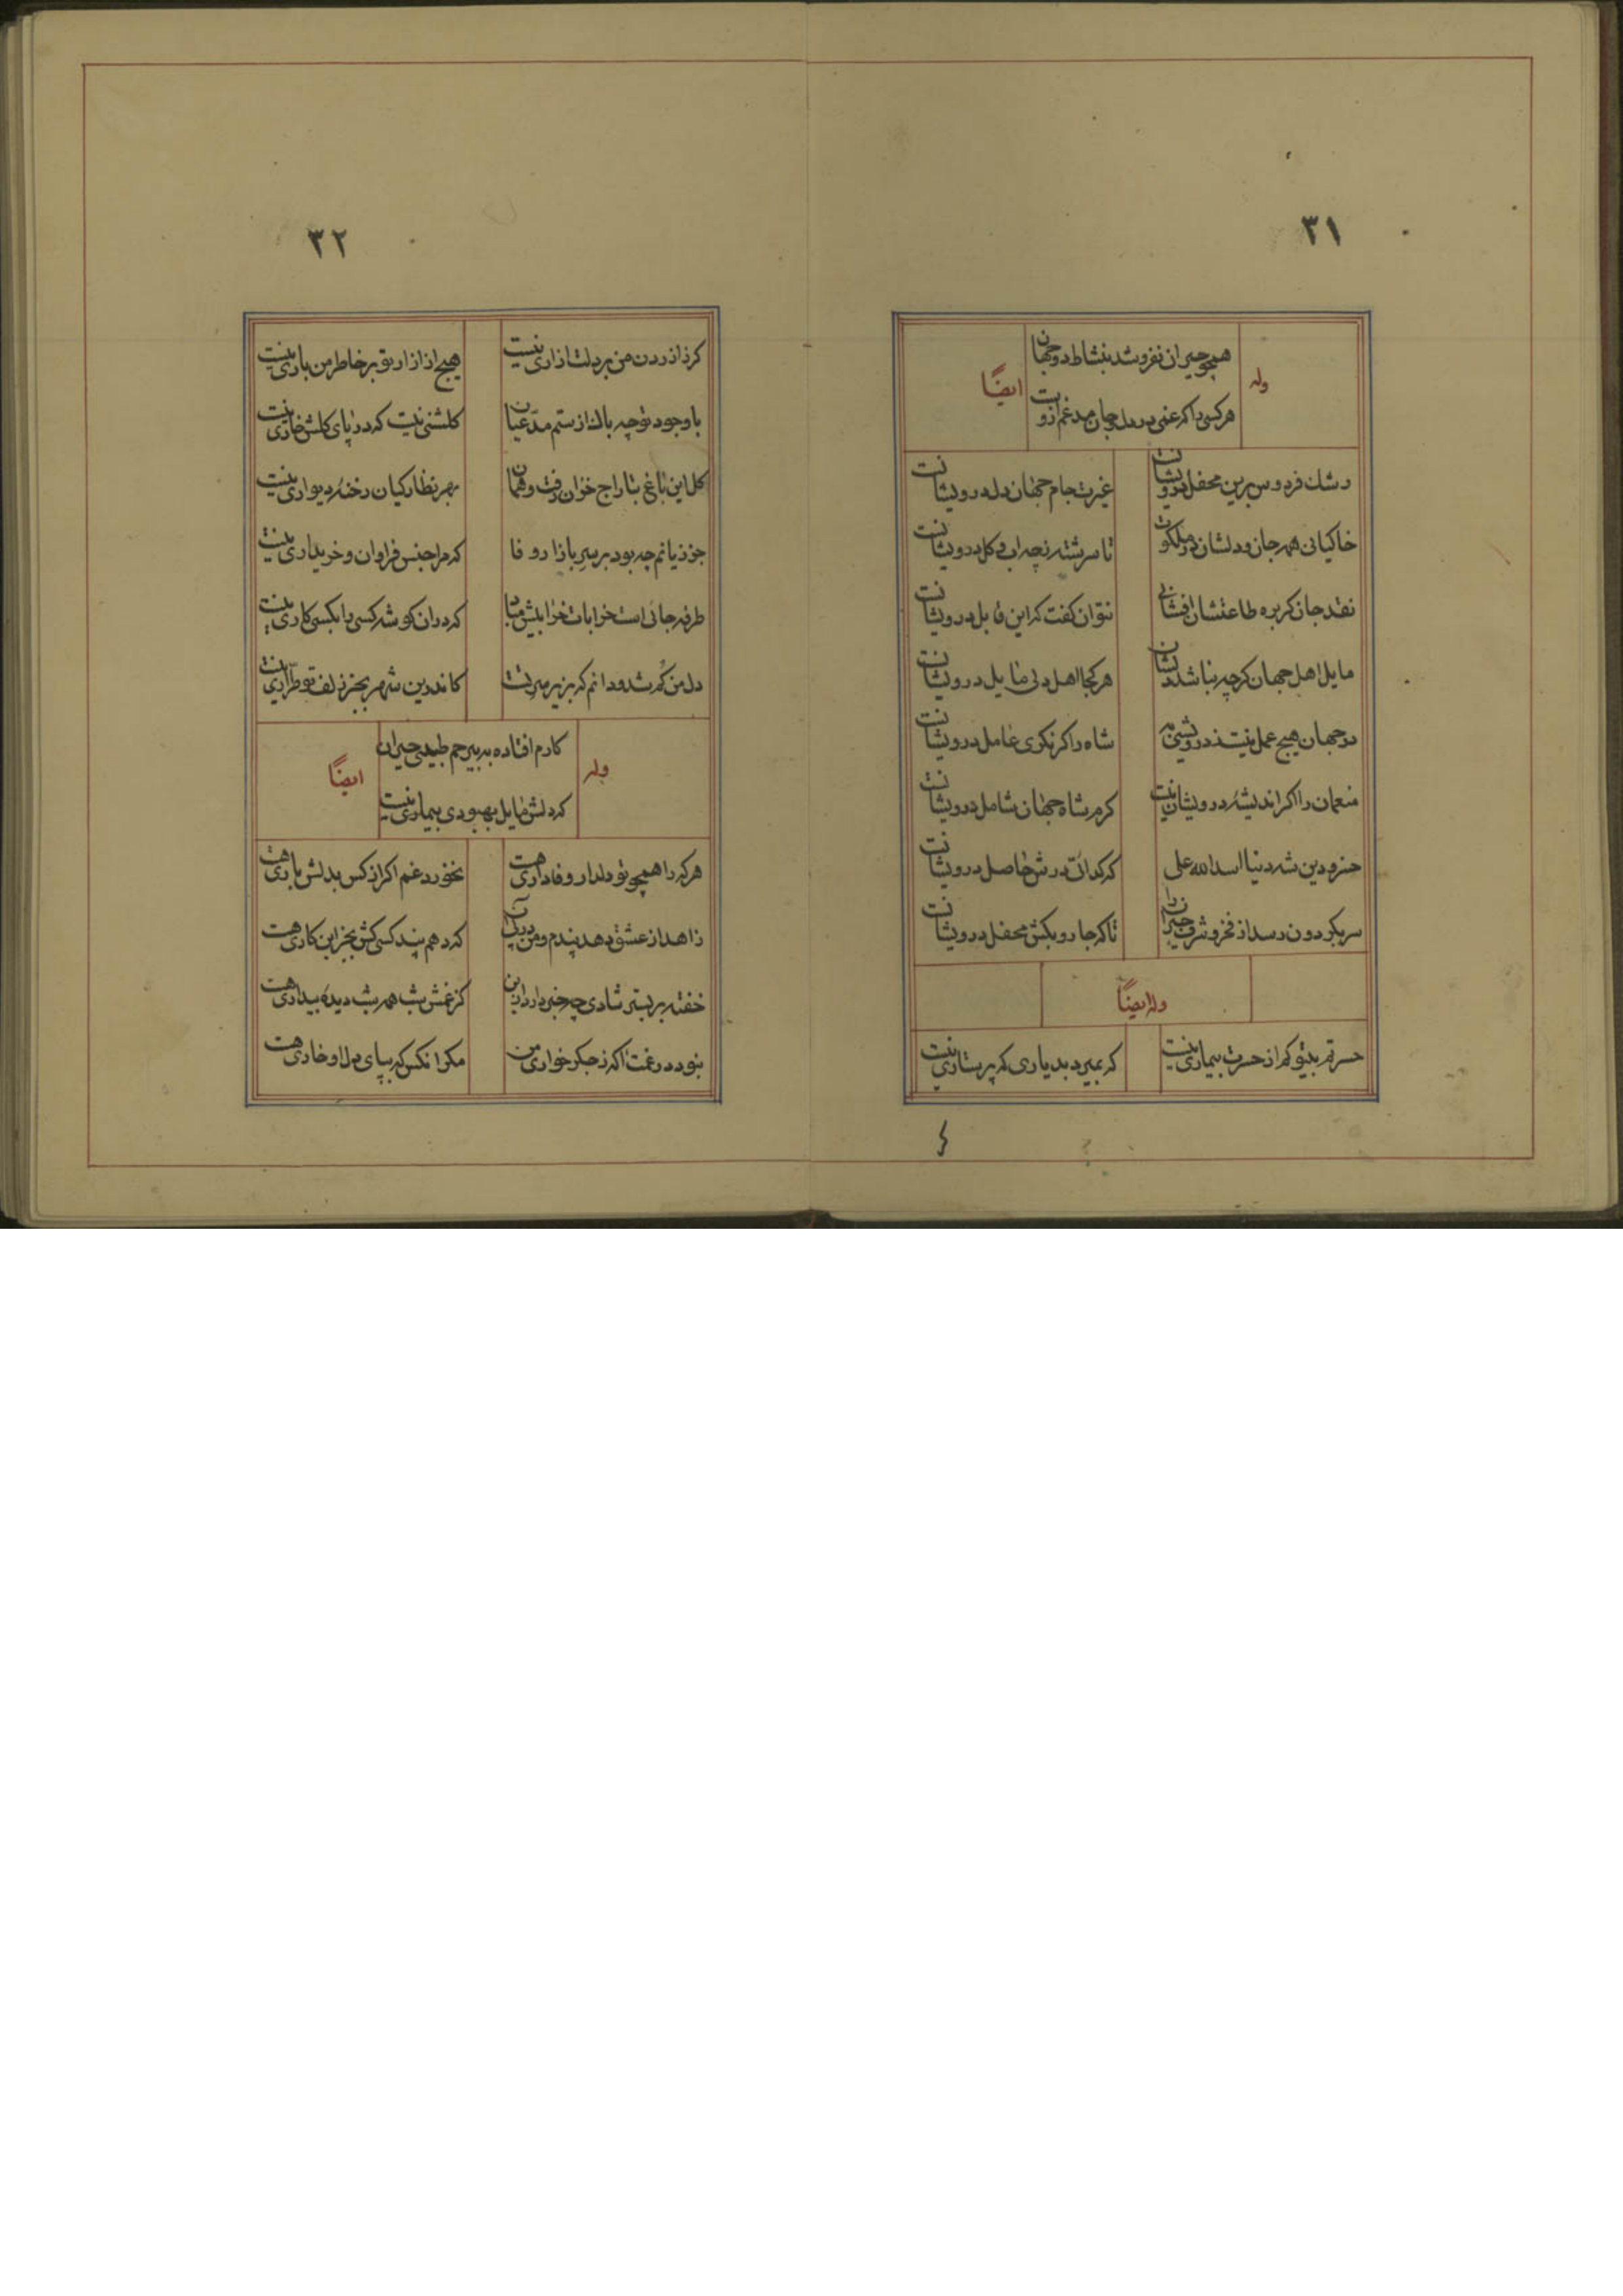 ۳۱
وله
همچو حیران نفروشد بنشاط دو جهان
ایضًا
هر کسی را که غمی در دل و جان مدغم ازوست
رشک فردوس برین محفل درویشانست
غیرت جام جهان دل درویشانست
خاکیانی همه جان و دلشان در ملکوت
تا سرشته ز چه آب و گل درویشانست
نقد جان گر بره طاعتشان افشانی
نتوان گفت که این قابل درویشانست
مایل اهل جهان گرچه نباشد دلشان
هر کجا اهل دلی مایل درویشانست
در جهان هیچ عمل نیست ز درویشی به
شاه را گر نگری عامل درویشانست
منعمان را اگر اندیشه درویشان نیست
کرم شاه جهان شامل درویشانست
خسرو دین شه دنیا اسدالله علی
که گدائی درش حاصل درویشانست
سر بگردون رسد از فخر و شرف حیران را
تا که جاروبکش محفل درویشانست
وله ایضًا
حسرتم بیتو کم از حسرت بیماری نیست
که بمیرد بدیاری که پرستاری نیست
۳۲
گر ز آزردن من بر دلت آزاری نیست
هیچ از آزار تو بر خاطر من باری نیست
با وجود تو چه باک از ستم مدّعیان
گلشنی نیست که در پای گلش خاری نیست
گل این باغ بتاراج خزان رفت و همان
بهر نظارگیان رخنه دیواری نیست
جز زیانم چه بود بر سر بازار وفا
که مرا جنس فراوان و خریداری نیست
طرفه جائی است خرابات خرابیش مباد
که در آن گوشه کسی را بکسی کاری نیست
دل من گم شد و دانم که بزیر سر تست
کاندرین شهر بجز زلف تو طرّاری نیست
وله
کارم افتاده به بیرحم طبیبی حیران
ایضًا
که دلش مایل بهبودی بیماری نیست
هر که را همچو تو دلدار وفاداری هست
نخورد غم اگر از کس بدلش باری هست
زاهد از عشق دهد پندم و من در پی آن
که دهم پند کسی کش بجز این کاری هست
خفته بر بستر شادی چه خبر دارد ازین
کز غمش شب همه شب دیده بیداری هست
نبود در غمت آگه ز جگرخواری من
مگر آنکس که بپای دل او خاری هست